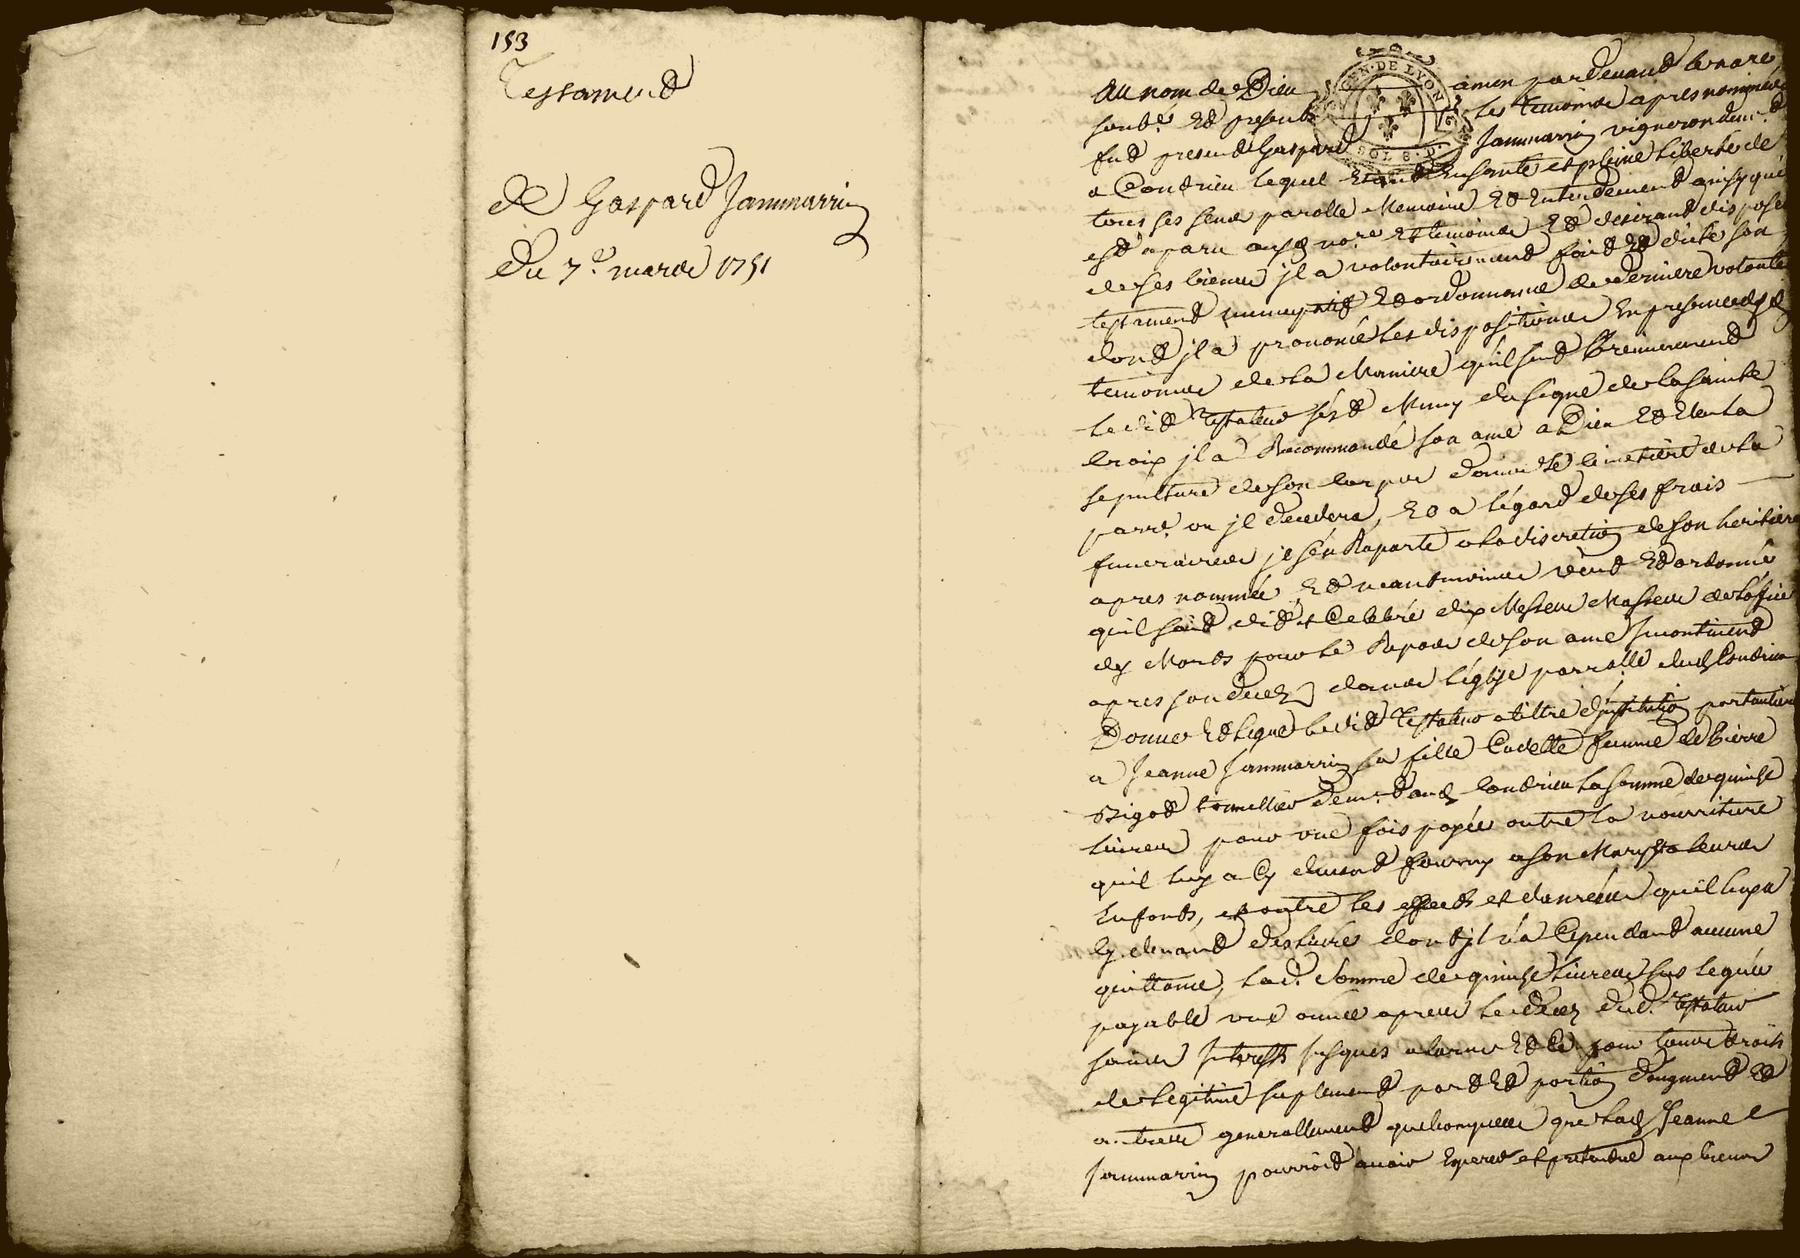 153
Testament
de Gaspard Jammarrin
Du 7e. mards 1751
GEN. DE LYON
SOL 8. D.
Au nom de Dieu amen pardevant le nore.
soubz. Et presents les temoins apres nommés
fut present Gaspard Jammarrin vigneron demt.
a Condrieu lequel Etant En santé et pleine liberté de
tous ses sens parolle Memoire Et Entendement ainsy qu'il
est aparu auxd nore Et temoins Et desirant disposer
de ses biens jl a volontairement fait Et dicté son
testament nuncupatif Et ordonnance de derniere volonté
dont jl a prononcé les dispositions En presence desd
temoins de la Maniere qu'il suit Premierement
Ledit Testateur s'est Muny du signe de la sainte
Croix jl a Recommandé son ame a Dieu Et Eleu la
sepulture de son Corps dans le Cimetiere de la
parre. ou jl decedera, Et a l'égard de ses frais
funeraires jl s'en Raporte a la discretion de son heritiere
apres nommée Et neantmoins veut Et ordonne
quil soit dit et Celebré dix Messes Messes de l'office
des Morts pour le Repos de son ame Jncontinent
apres son decez dans l'église parrolle dud Condrieu
Donne Et Legue Ledit Testateur a tiltre d'jnstitution particuliere
a Jeanne Jammarrin sa fille Cadette femme de Pierre
Bigot tonnellier demt. aud Condrieu la somme de quinse
Livres pour une fois payée outre la nourriture
quil luy a Cy devant fourny a son Mary Et a leurs
Enfants, et outre les effects et danrées qu'il luy a
Cy devant deslivrés dont jl n'a Cependant aucune
quittance, lad. somme de quinse Livres sus leguée
payable une année apres le decez dud. Testateur
sans Jnterests jusques alors Et Ce pour tous droits
de Legitime suplement part Et portion d'augment Et
autres generallement quelconques que lad Jeanne
Jammarrin pourroit avoir Esperer et pretendre aux biens